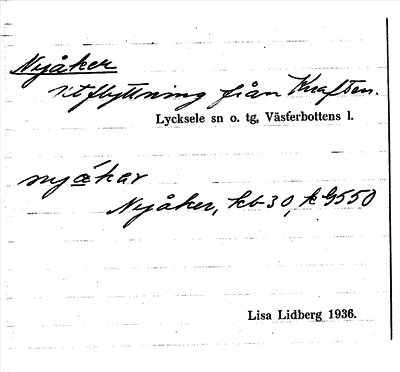 Nyåker
Utflyttning från Knaften.
Lycksele sn o. tg, Västerbottens l.
nyǽkar
Nyåker, kb 30, k G550
Lisa Lidberg 1936.